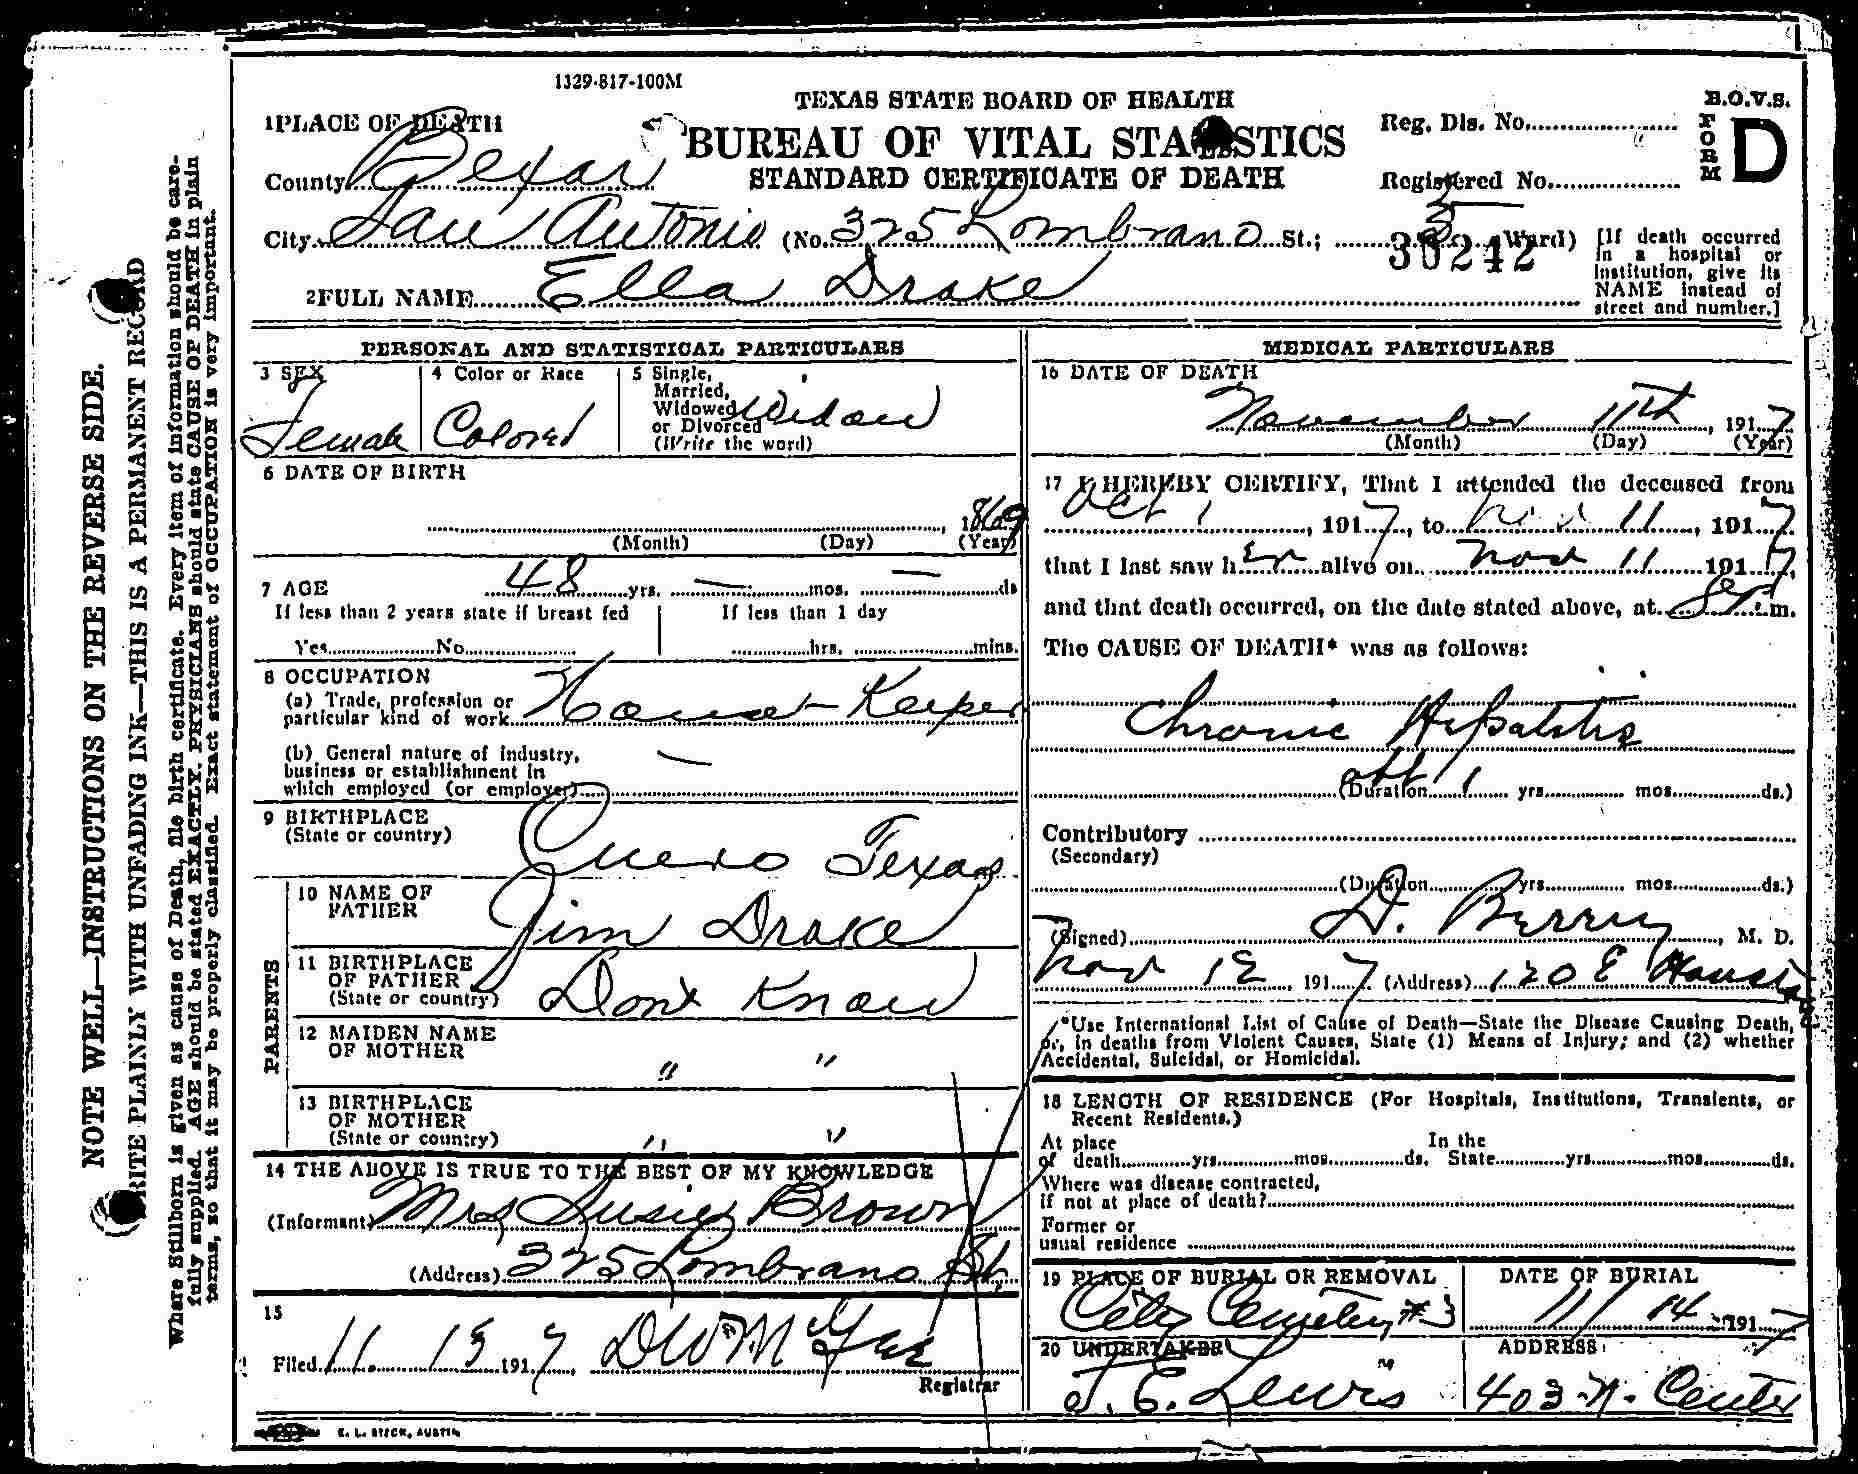 1329-817-100M
TEXAS STATE BOARD OF HEALTH
B.O.V.S.
FORM D
1 PLACE OF DEATH
BUREAU OF VITAL STATISTICS
Reg. Dis. No.
County Bexar
STANDARD CERTIFICATE OF DEATH
Registered No.
City San Antonio (No. 325 Lombrano St.; 5 Ward)
30242
[If death occurred in a hospital or institution, give its NAME instead of street and number.]
2 FULL NAME Ella Drake
PERSONAL AND STATISTICAL PARTICULARS
3 SEX
Female
4 Color or Race
Colored
5 Single, Married, Widowed or Divorced (Write the word)
Widow
6 DATE OF BIRTH
1869
(Month) (Day) (Year)
7 AGE 48 yrs. — mos. — ds
If less than 2 years state if breast fed
Yes No
If less than 1 day
hrs. mins.
8 OCCUPATION
(a) Trade, profession or particular kind of work House-Keeper
(b) General nature of industry, business or establishment in which employed (or employer) —
9 BIRTHPLACE
(State or country) Cuero Texas
PARENTS
10 NAME OF FATHER Jim Drake
11 BIRTHPLACE OF FATHER (State or country) Dont Know
12 MAIDEN NAME OF MOTHER " "
13 BIRTHPLACE OF MOTHER (State or country) " "
14 THE ABOVE IS TRUE TO THE BEST OF MY KNOWLEDGE
(Informant) Mrs Susie Brown
(Address) 325 Lombrano St.
15
Filed 11. 13 1917,
Registrar
MEDICAL PARTICULARS
16 DATE OF DEATH
November 11th, 1917
(Month) (Day) (Year)
17 I HEREBY CERTIFY, That I attended the deceased from
Oct 1, 1917, to Nov 11, 1917
that I last saw her alive on Nov 11 1917,
and that death occurred, on the date stated above, at m.
The CAUSE OF DEATH* was as follows:
Chronic Hepatitis
(Duration abt 1 yrs. mos. ds.)
Contributory
(Secondary)
(Duration yrs. mos. ds.)
(Signed) D. Berrey, M. D.
Nov 12, 1917 (Address) 120 E Houston
*Use International List of Cause of Death—State the Disease Causing Death, or, in deaths from Violent Causes, State (1) Means of Injury; and (2) whether Accidental, Suicidal, or Homicidal.
18 LENGTH OF RESIDENCE (For Hospitals, Institutions, Transients, or Recent Residents.)
At place of death yrs. mos. ds. In the State yrs. mos. ds.
Where was disease contracted, if not at place of death?
Former or usual residence
19 PLACE OF BURIAL OR REMOVAL
City Cemetery #3
DATE OF BURIAL
11/14 1917
20 UNDERTAKER
J. E. Lewis
ADDRESS
403-N. Center
E. L. STECK, AUSTIN
NOTE WELL—INSTRUCTIONS ON THE REVERSE SIDE.
WRITE PLAINLY WITH UNFADING INK—THIS IS A PERMANENT RECORD
Where Stillborn is given as cause of Death, file birth certificate. Every item of information should be care-
fully supplied. AGE should be stated EXACTLY. PHYSICIANS should state CAUSE OF DEATH in plain
terms, so that it may be properly classified. Exact statement of OCCUPATION is very important.